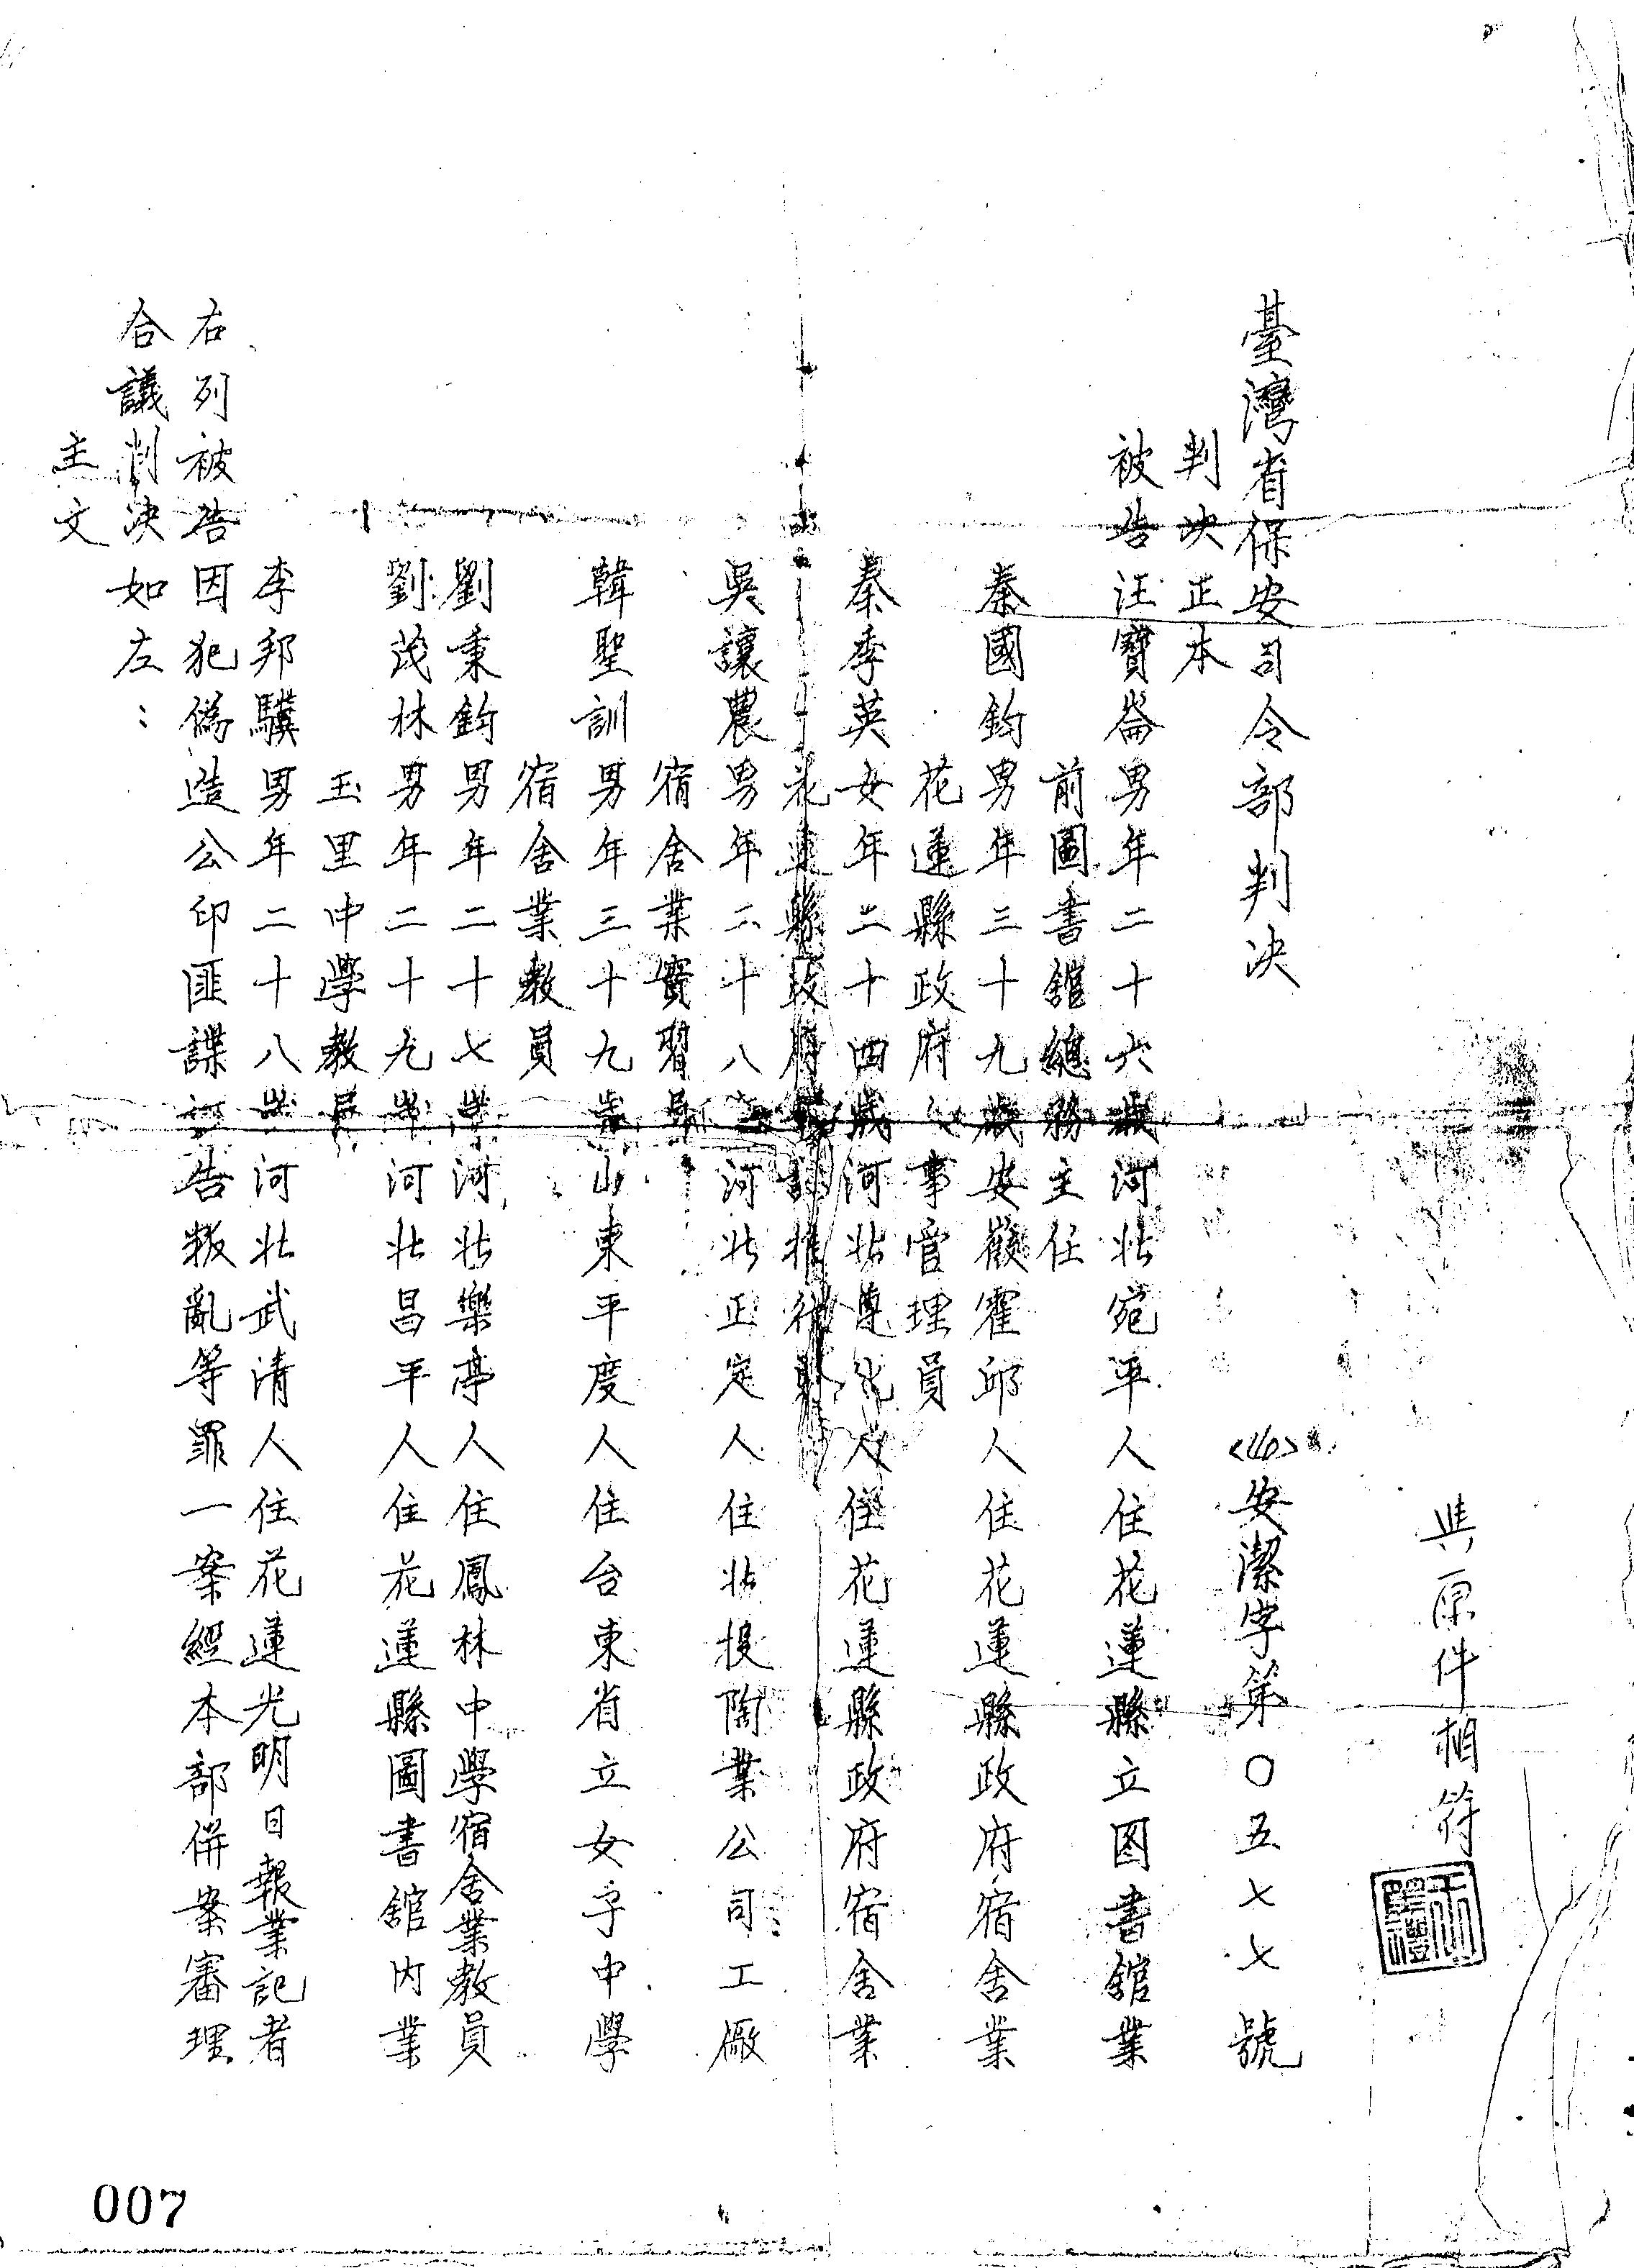 與原件相符
臺灣省保安司令部判决
<40>安潔字第〇五七七號
判决正本
被告汪寶崙男年二十六歲河北宛平人住花蓮縣立图書館業
前圖書館總務主任
秦國鈞男年三十九歲安徽霍邱人住花蓮縣政府宿舍業
花蓮縣政府人事管理員
秦季英女年二十四歲河北遵化人住花蓮縣政府宿舍業
花蓮縣政府
吳讓農男年二十八歲河北正定人住北投陶業公司工廠
宿舍業實習員
韓聖訓男年三十九歲山東平度人住台東省立女子中學
宿舍業教員
劉秉鈞男年二十七歲河北樂亭人住鳳林中學宿舍業教員
劉茂林男年二十九歲河北昌平人住花蓮縣圖書館內業
玉里中學教員
李邦驥男年二十八歲河北武清人住花蓮光明日報業記者
右列被告因犯偽造公印匪諜誣告叛亂等罪一案經本部併案審理
合議判决如左：
主文
007